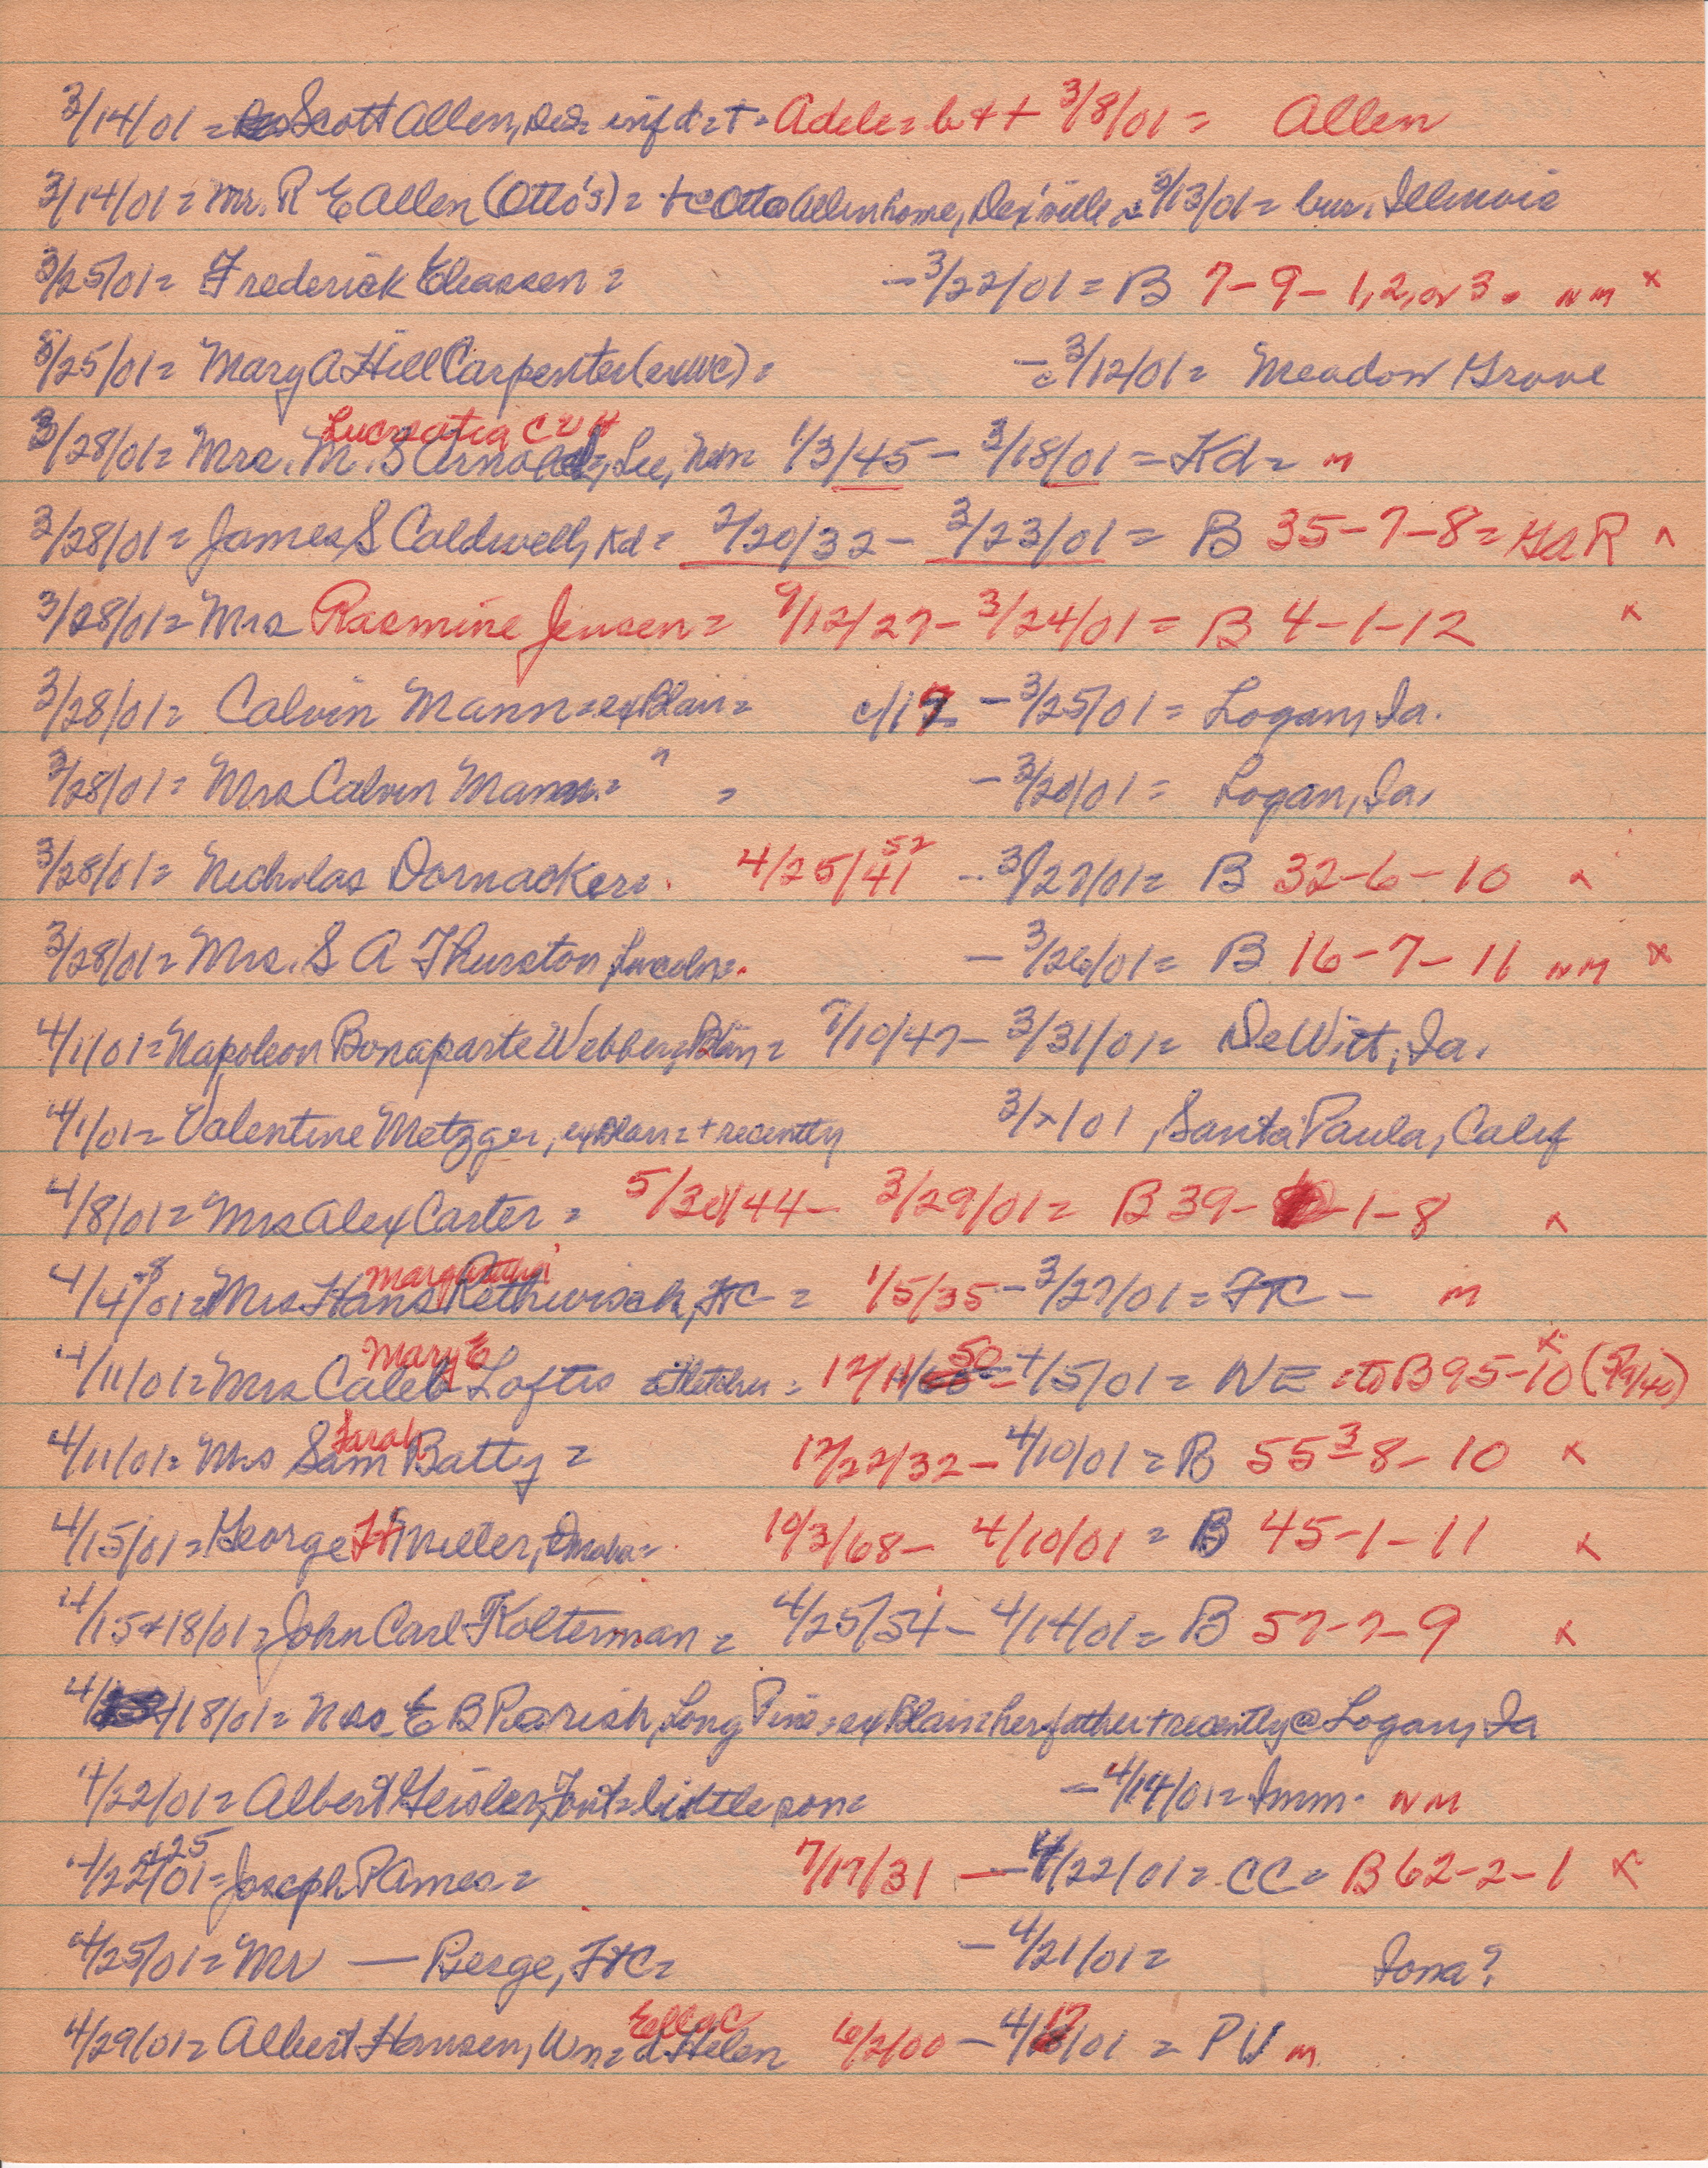 3/14/01 = Scott Allen, inf d = + = Adele = b + + 3/8/01 = Allen
3/14/01 = Mr. R E Allen (Otto's) = + @ Otto Allen home, Dex'ville, 3/13/01 = bur. Illinois
3/25/01 = Frederick = - 3/22/01 = B 7-9-1,2, or 3 = NM x
3/25/01 = Mary A Hill Carpenter = - 3/12/01 = Meadow Grove
Lucreatia C
3/28/01 = Mrs. M. S Arnold, Lee, 1/3/45 - 3/18/01 = Kd = M
3/28/01 = James S Caldwell, Kd = 2/20/32 - 3/23/01 = B 35-7-8 = GAR x
3/28/01 = Mrs Rasmine Jensen = 9/12/27 - 3/24/01 = B 4-1-12 x
3/28/01 = Calvin Mann = ex Blair = c/17 - 3/25/01 = Logan, Ia.
3/28/01 = Mrs Calvin Mann = " = - 3/20/01 = Logan, Ia.
52
3/28/01 = Nicholas Dornacker = 4/25/41 - 3/27/01 = B 32-6-10 x
3/28/01 = Mrs. S A Thurston, Lincoln = - 3/26/01 = B 16-7-11 NM x
4/1/01 = Napoleon Bonaparte Webber, Blair = 7/10/47 - 3/31/01 = DeWitt, Ia.
4/1/01 = Valentine Metzger, ex Blair = + recently 3/x/01, Santa Paula, Calif
4/8/01 = Mrs Alex Carter = 5/30/44 - 3/29/01 = B 39-1-8 x
4/4+8/01 = Mrs Hans Rethwisch, FtC = 1/5/35 - 3/27/01 = FtC - M
Mary E 50 x
4/11/01 = Mrs Caleb Loftis = 12/11/ - 4/5/01 = WE = to B 95-10 (5/9/40)
Sarah 3
4/11/01 = Mrs Sam Batty = 12/22/32 - 4/10/01 = B 55-8-10 x
4/15/01 = George H Miller, Omaha = 10/3/68 - 4/10/01 = B 45-1-11 x
4/15+18/01 = John Carl Kolterman = 4/25/54 - 4/14/01 = B 57-7-9 x
4/18/01 = Mrs. E B Parish, Long Pine = ex Blair = her father + recently @ Logan, Ia
4/22/01 = Albert Geisler, Font = little son = - 4/14/01 = Imm. NM
+25
4/22/01 = Joseph P Ames = 7/17/31 - 4/22/01 = CC = B 62-2-1 x
4/25/01 = Mr — Berge, FtC = - 4/21/01 = Iona?
Ella C 17
4/29/01 = Albert Hansen, Wm = d Helen 6/2/00 - 4/ /01 = PV M